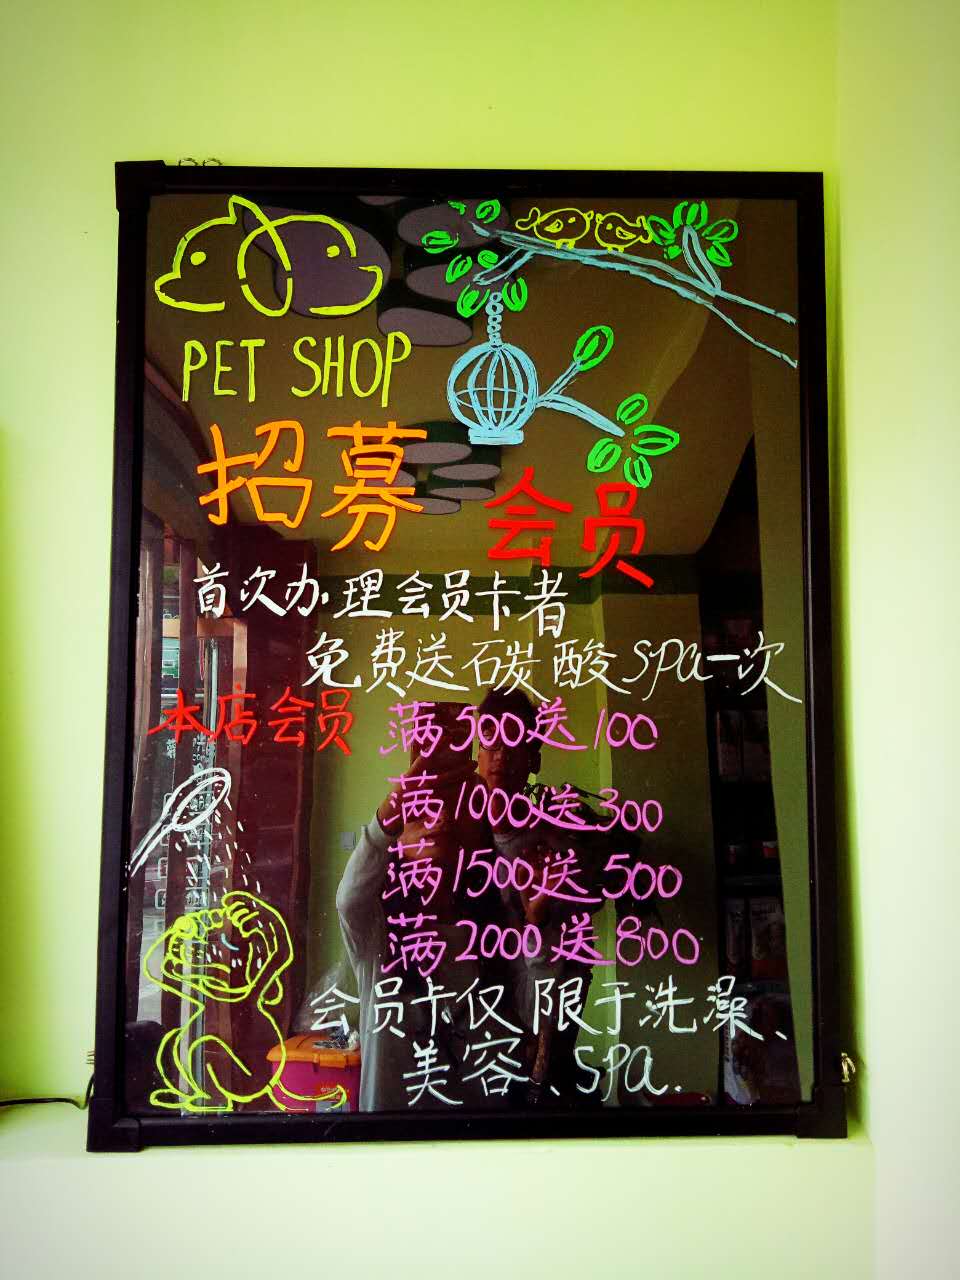 PET SHOP
招募会员
首次办理会员卡者
免费送碳酸spa一次
本店会员 满500送100
满1000送300
满1500送500
满2000送800
会员卡仅限于洗澡、
美容、spa.